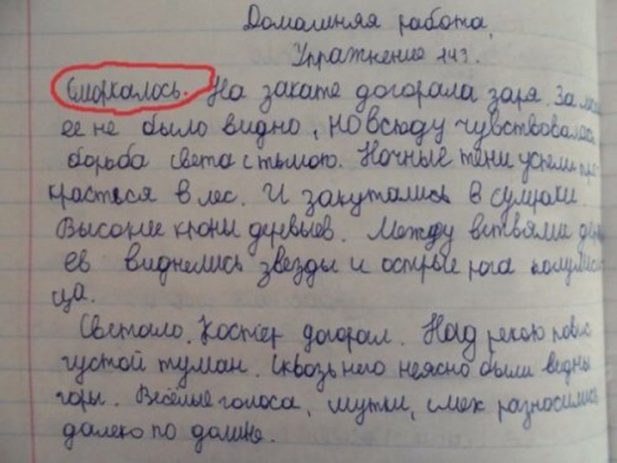 Домашняя работа,
Упражнение 243.
Сморкалось. На закате догорала заря. За
ее не было видно, но всюду чувствовалась
борьба света с тьмою. Ночные тени успели про
красться в лес. И закутались в сумраки
Высокие кроны деревьев. Между ветвями дер
ев виднелись звезды и острые рога полумеся
ца.
Светало. Костёр догорал. Над рекою повис
густой туман. Сквозь него неясно были видны
горы. Весёлые голоса, шутки, смех разносились
далеко по долине.